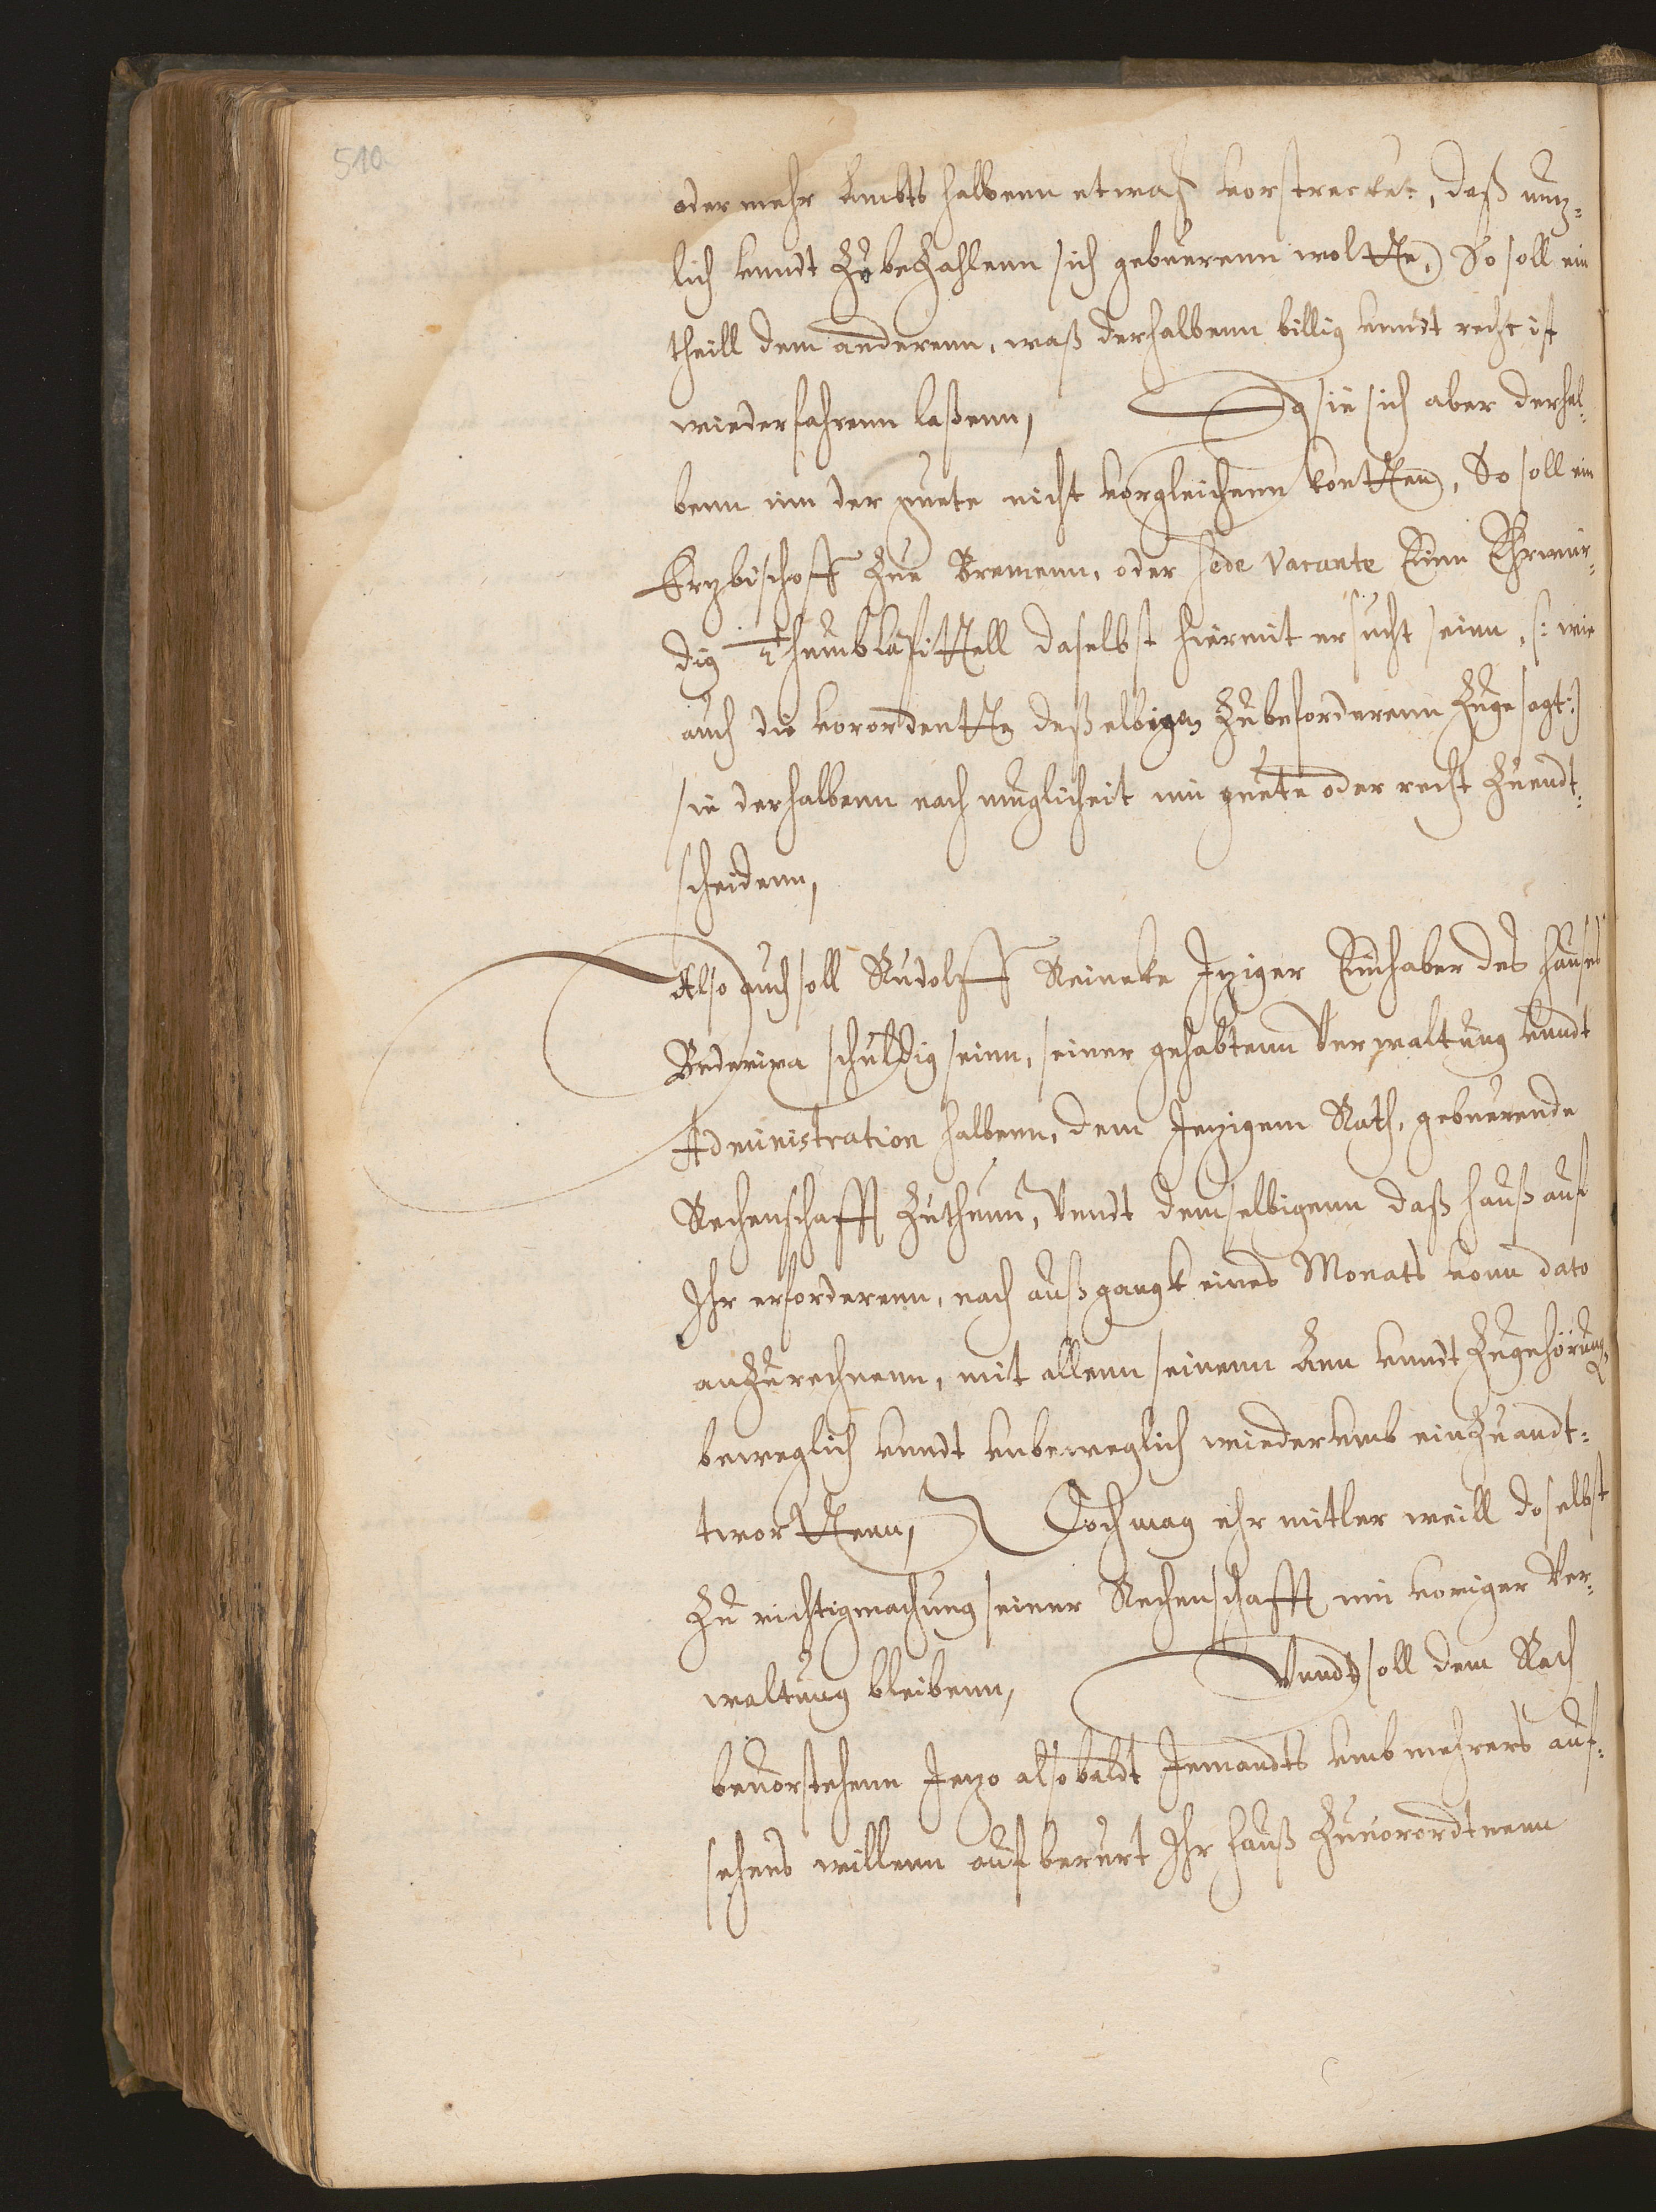 510
oder mehr Ambts halbenn etwaß vorstrecket, daß nutz¬
lich vnndt Zu beZahlenn sich gebuerenn woltte, So soll ein
theill dem anderenn, waß derhalbenn billig vnndt recht ist
wiederfahrenn laßenn, Da sie sich aber derhal¬
benn inn der guete nicht vorgleichenn kontten, So soll ein
Ertzbischoff Zue Bremenn, oder sede vacante Einn Ehrwur¬
dig Thumb Capittell daselbst hiermit ersucht seinn, /: wie
auch die vorordentte deßelbigen Zubeforderenn Zugesagt :/
sie derhalbenn nach muglicheit inn guete oder recht Zuendt¬
scheidenn,
Also auch soll Rudolff Reineke Itziger Einhaber des hauses
Bederixa schuldig seinn, seiner gehabtenn Verwaltung vnndt
Administration halbenn, dem Jetzigem Rath, gebuerende
Rechenschafft Zuthunn, Vnndt demselbigenn daß hauß auf
Ihr erforderenn, nach außgangk eines Monats vonn dato
anZurechnenn, mit allenn seinenn Ann vnndt Zugehörung,
beweglich vnndt vnbeweglich wiederumb einZuandt¬
tworttenn, Doch mag ehr mitler weill doselbst
Zu richtigmachung seiner Rechenschafft inn voriger Ver¬
waltung bleibenn, Vnndt soll dem Rath
beuorstehenn Jetzo alsobaldt Jemandts vmb mehrers auf¬
sehens willenn auf berurt Ihr hauß Zuuorordtnenn